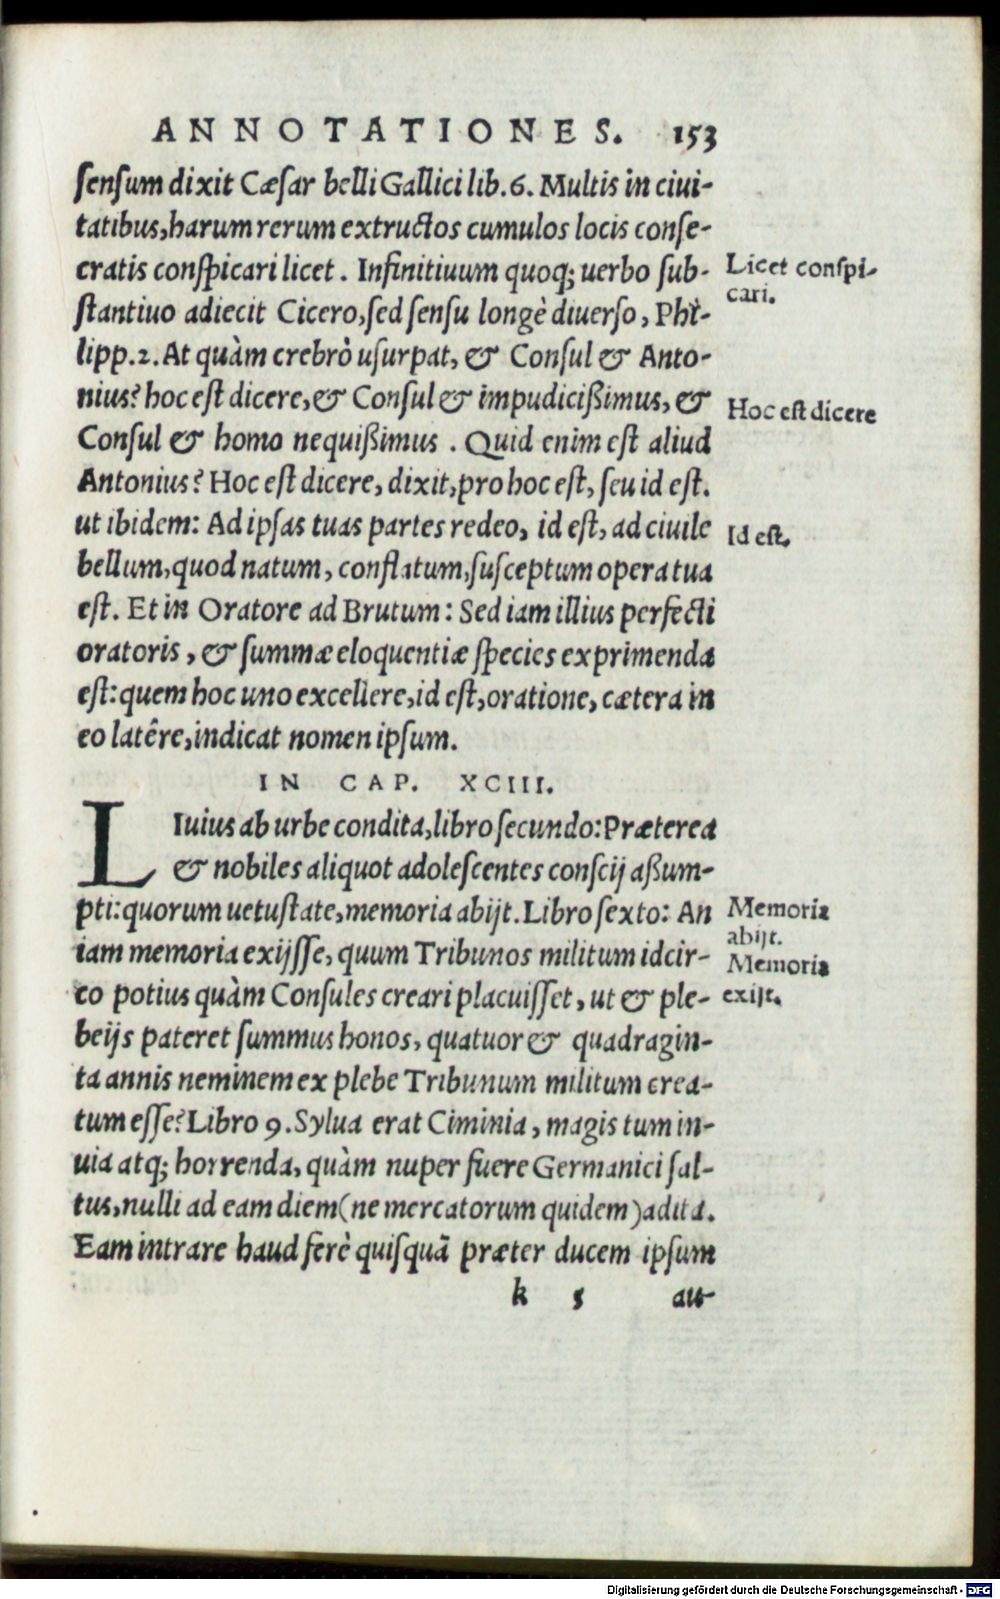 ANNOTATIONES. 153
sensum dixit Cæsar belli Gallici lib. 6. Multis in ciui-
tatibus, harum rerum extructos cumulos locis conse-
cratis conspicari licet. Infinitiuum quoq; uerbo sub-
Licet conspi-
cari.
stantiuo adiecit Cicero, sed sensu longè diuerso, Phi-
lipp. 2. At quàm crebrò usurpat, & Consul & Anto-
nius? hoc est dicere, & Consul & impudicißimus, &
Hoc est dicere
Consul & homo nequißimus. Quid enim est aliud
Antonius? Hoc est dicere, dixit, pro hoc est, seu id est.
ut ibidem: Ad ipsas tuas partes redeo, id est, ad ciuile
Id est.
bellum, quod natum, conflatum, susceptum opera tua
est. Et in Oratore ad Brutum: Sed iam illius perfecti
oratoris, & summæ eloquentiæ species exprimenda
est: quem hoc uno excellere, id est, oratione, cætera in
eo latêre, indicat nomen ipsum.
IN CAP. XCIII.
LIuius ab urbe condita, libro secundo: Præterea
& nobiles aliquot adolescentes conscij aßum-
pti: quorum uetustate, memoria abijt. Libro sexto: An
Memoria
abijt.
iam memoria exijsse, quum Tribunos militum idcir-
Memoria
exijt.
co potius quàm Consules creari placuisset, ut & ple-
beijs pateret summus honos, quatuor & quadragin-
ta annis neminem ex plebe Tribunum militum crea-
tum esse? Libro 9. Sylua erat Ciminia, magis tum in-
uia atq; horrenda, quàm nuper fuere Germanici sal-
tus, nulli ad eam diem (ne mercatorum quidem) adita.
Eam intrare haud ferè quisquã præter ducem ipsum
k 5 au-
Digitalisierung gefördert durch die Deutsche Forschungsgemeinschaft - DFG